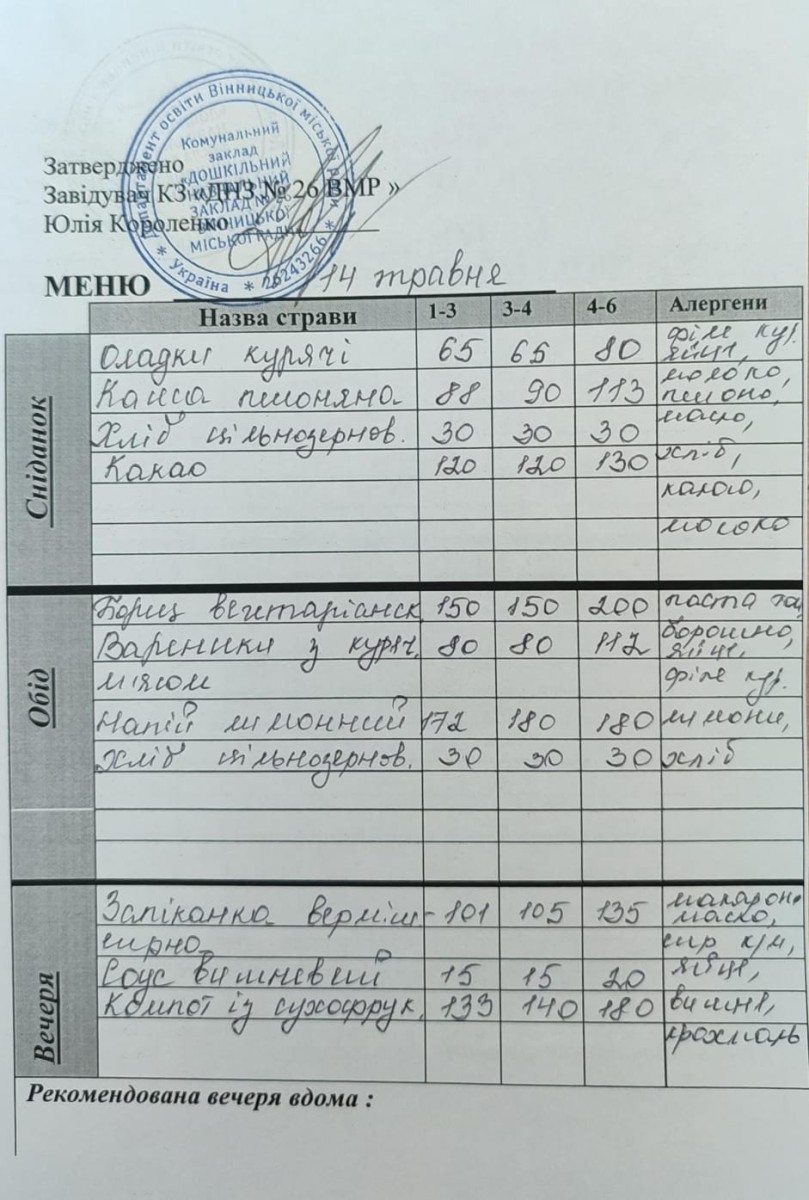 Департамент освіти Вінницької міської ради
Комунальний
заклад
«ДОШКІЛЬНИЙ
НАВЧАЛЬНИЙ
ЗАКЛАД № 26
ВІННИЦЬКОЇ
МІСЬКОЇ РАДИ»
* Україна * 26243266 *
Затверджено
Завідувач КЗ «ДНЗ № 26 ВМР »
Юлія Короленко
МЕНЮ 14 травня
Назва страви 1-3 3-4 4-6 Алергени
Сніданок
Оладки курячі 65 65 80 філе кур. яйце,
Каша пшоняна 88 90 113 молоко, пшоно,
Хліб цільнозернов. 30 30 30 масло,
Какао 120 120 130 хліб,
какао,
молоко
Обід
Борщ вегетаріанск. 150 150 200 паста
Вареники з куряч. 80 80 112 борошно, яйце,
м'ясом філе кур.
Напій лимонний 172 180 180 лимони,
Хліб цільнозернов. 30 30 30 хліб
Вечеря
Запіканка верміш- 101 105 135 макарон. масло,
сирна сир к/м,
Соус вишневий 15 15 20 яйце,
Компот із сухофрук. 133 140 180 вишні,
крохмаль
Рекомендована вечеря вдома :